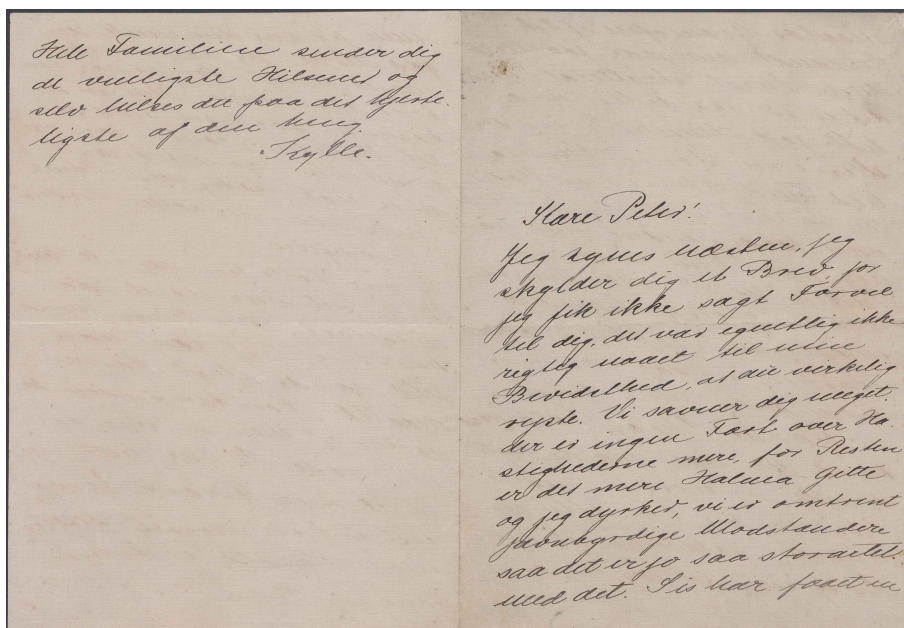 Hele Familien sender dig
de venligste Hilsener og
selv hilses du paa det hjerte-
ligste af din heng.
Kylle.
Kære Peter!
Jeg synes næsten, jeg
skylder dig et Brev, for
jeg fik ikke sagt Farvel
til dig, det var egentlig ikke
rigtig naaet til min
Bevidsthed, at du virkelig
rejste. Vi savner dig meget,
der er ingen Fart over Ha-
stighederne mere, for Resten
er det mere Halma Gitte
og jeg dyrker, vi er omtrent
jævnbyrdige Modstandere
saa det er jo saa storartet
med det. Sis har faaet en